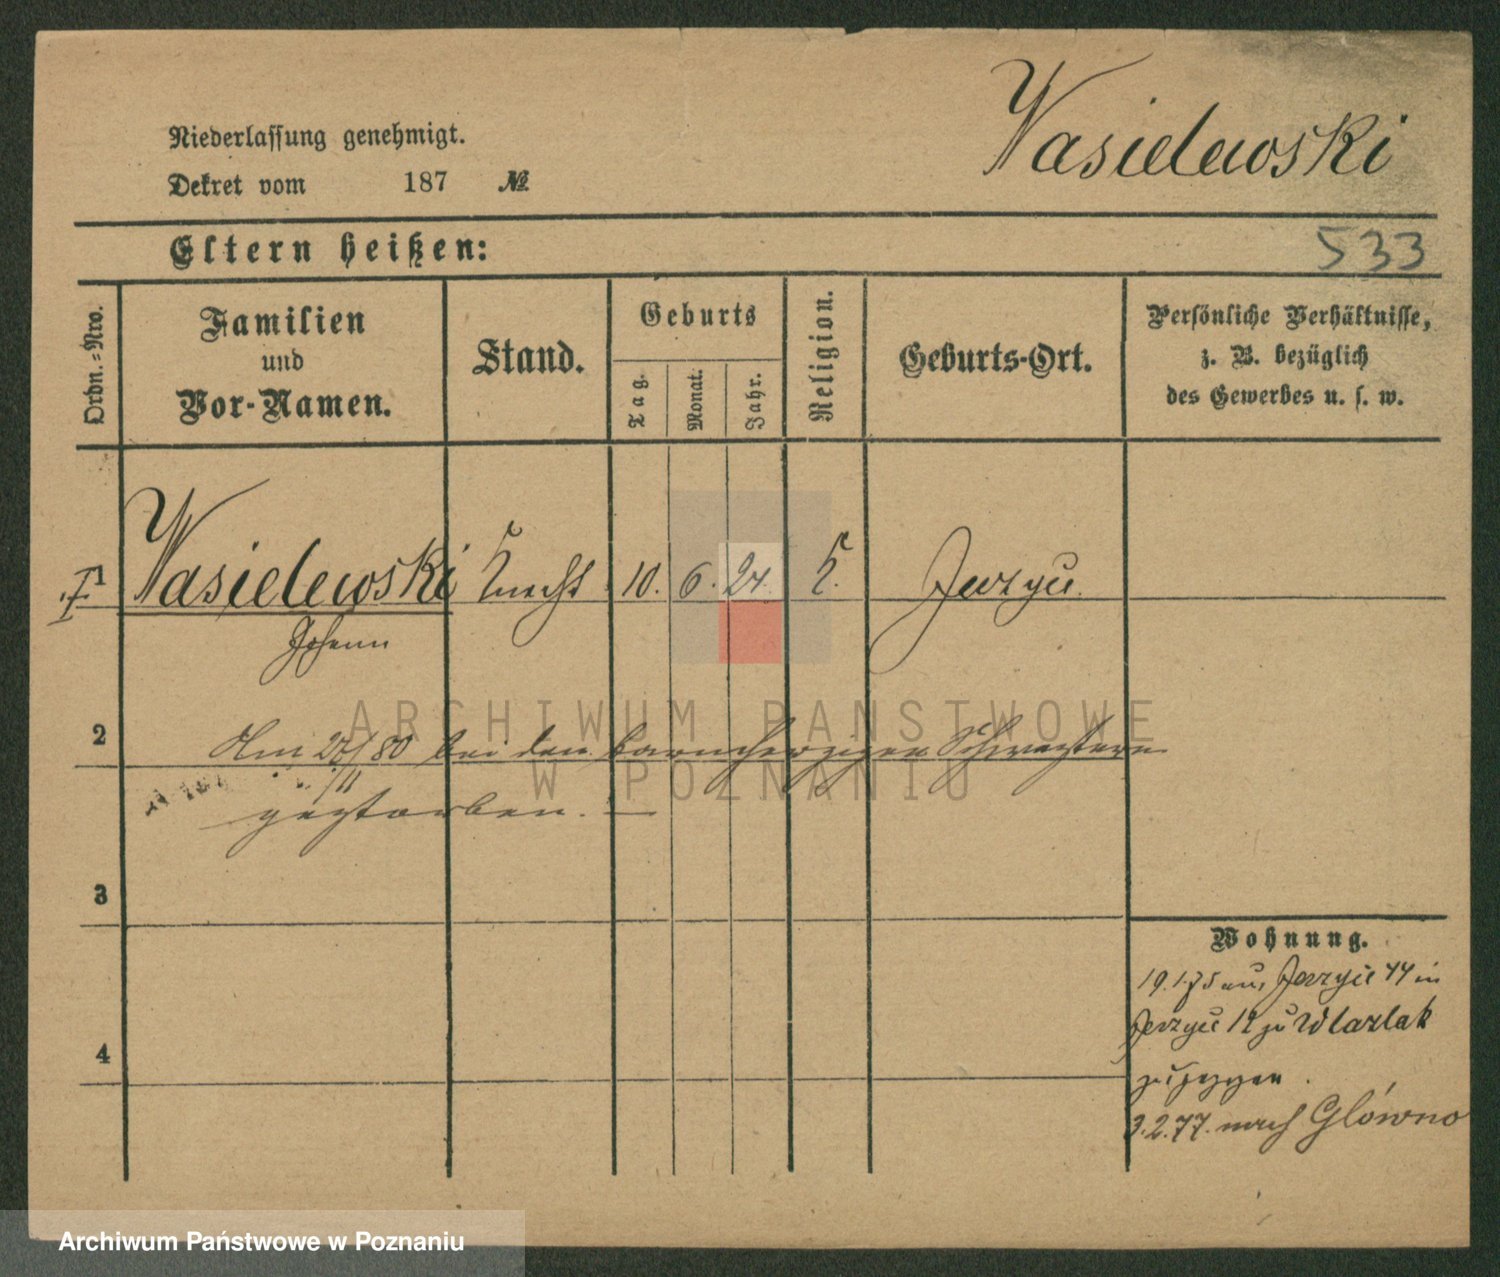 Wasielewski
Niederlassung genehmigt.
Dekret vom 187 №
Eltern heißen:
533
Ordn.-Nro.
Familien
und
Vor-Namen.
Stand.
Geburts
Tag.
Monat.
Jahr.
Religion.
Geburts-Ort.
Persönliche Verhältnisse,
z. B. bezüglich
des Gewerbes u. s. w.
1 Wasielewski Knecht 10. 6. 24. K. Jerzyce.
Johann
2
Am /80 bei den barmherzigen Schwestern
11
gestorben. —
3
4
Wohnung.
19.1.75 aus Jerzyce 44 in
Jerzyce 12 zu Wlazlak
zugezogen.
3.2.77. nach Główno
ARCHIWUM PAŃSTWOWE
W POZNANIU
Archiwum Państwowe w Poznaniu